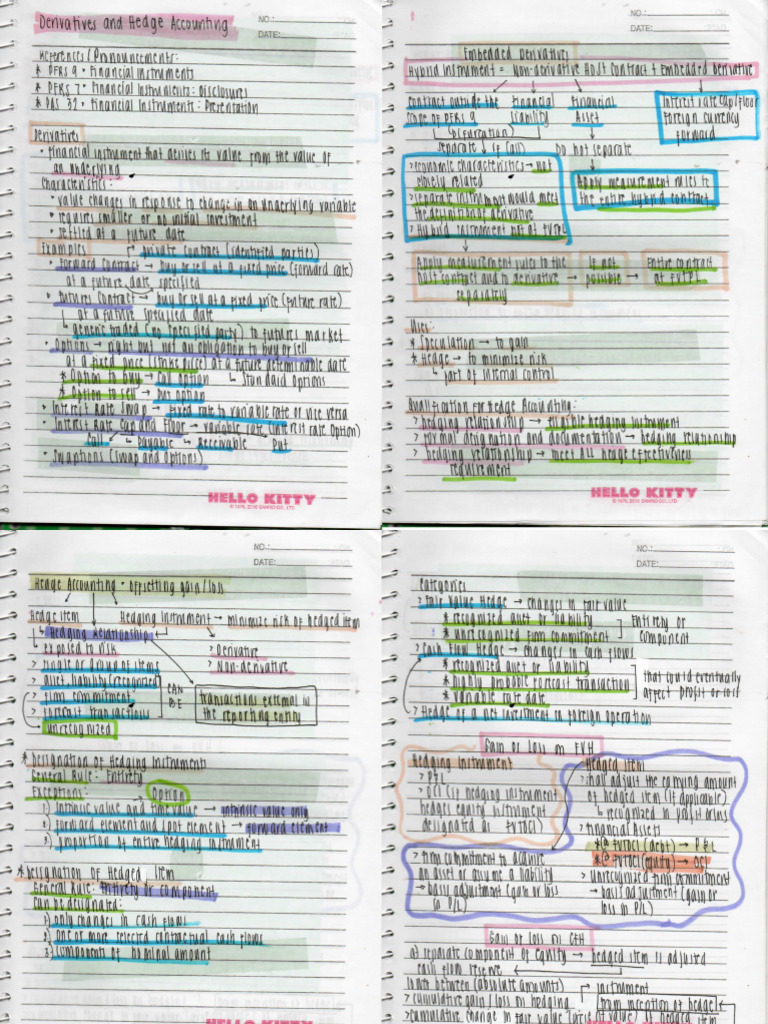 NO.:
DATE:
Derivatives and Hedge Accounting
References / Pronouncements:
* PFRS 9 • Financial Instruments
* PFRS 7 • Financial Instruments: Disclosures
* PAS 32 • Financial Instruments: Presentation
Derivatives
• financial instrument that derives its value from the value of
an underlying
Characteristics:
• value changes in response to change in an underlying variable
• requires smaller or no initial investment
• settled at a future date
Examples → private contract (identified parties)
• Forward Contract → buy or sell at a fixed price (forward rate)
at a future date specified
• Futures Contract → buy or sell at a fixed price (future rate)
at a future specified date
↳ generic traded (no specified party) to futures market
• Options → right but not an obligation to buy or sell
at a fixed price (strike price) at a future determinable date
* Option to buy → call option ↳ Standard Options
* Option to sell → put option
• Interest Rate Swap → fixed rate to variable rate or vice versa
• Interest Rate Cap and Floor → variable rate (Interest rate Option)
Call Payable Receivable Put
• Swaptions (swap and options)
HELLO KITTY
NO.:
DATE:
Embedded Derivatives
Hybrid Instrument = Non-derivative Host Contract + Embedded Derivative
Contract outside the scope of PFRS 9
Financial liability
Financial Asset
Interest rate cap/floor
foreign currency
forward
(Bifurcation)
separate if (all)
Do not separate
> economic characteristics → not
closely related
> separate instrument would meet
the definition of derivative
> Hybrid instrument not at FVTPL
Apply measurement rules to
the entire hybrid contract
Apply measurement rules to the
host contract and to derivative
separately
→ If not possible →
Entire contract
at FVTPL
Uses:
* Speculation → to gain
* Hedge → to minimize risk
part of internal control
Qualification for Hedge Accounting:
> hedging relationship → eligible hedging instrument
> formal designation and documentation → hedging relationship
> hedging relationship → meet ALL hedge effectiveness
requirement
HELLO KITTY
NO.:
DATE:
Hedge Accounting • offsetting gain/loss
Hedge Item Hedging Instrument → minimize risk of hedged item
↳ Hedging Relationship
↳ exposed to risk
> Derivative
> single or group of items
> Non-derivative
> asset, liability (recognized)
> firm commitment
> forecast transactions
CAN BE
unrecognized
transactions external in
the reporting entity
* Designation of Hedging Instrument
General Rule: Entirety
Exceptions: → Option
1) Intrinsic value and time value → intrinsic value only
2) forward element and spot element → forward element
3) proportion of entire hedging instrument
* Designation of Hedged Item
General Rule: Entirety or component
Can be designated:
1) only changes in cash flows
2) one or more selected contractual cash flows
3) components of nominal amount
HELLO KITTY
NO.:
DATE:
Categories
> Fair Value Hedge → changes in fair value
* recognized asset or liability
* unrecognized firm commitment
Entirety or
component
> Cash Flow Hedge → changes in cash flows
* recognized asset or liability
* highly probable forecast transaction
* variable rate date
that could eventually
affect profit or loss
> Hedge of a net investment in foreign operation
Gain or Loss on FVH
Hedging Instrument
> P&L
> OCI (if hedging instrument
hedges equity instrument
designated as FVTOCI)
Hedged Item
> shall adjust the carrying amount
of hedged item (if applicable)
↳ recognized in profit or loss
> Financial Assets
* @ FVTOCI (debt) → P&L
* @ FVTOCI (equity) → OCI
> unrecognized firm commitment
→ basis adjustment (gain or
loss in P/L)
> firm commitment to acquire
an asset or assume a liability
→ basis adjustment (gain or loss
in P/L)
Gain or Loss on CFH
a) separate component of equity → hedged item is adjusted
cash flow reserve
lower between (absolute amounts)
> cumulative gain / loss on hedging instrument
from inception of hedge
> cumulative change in fair value
of hedged item
HELLO KITTY